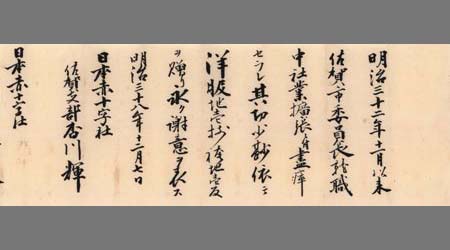 明治三十二年十一月以来
佐賀市委員長職
中社業擴張ニ盡瘁
セラレ其功少依テ
洋服地壱地壱反
ヲ贈リ永ク謝意ヲ表ス
明治三十八年十二月七日
日本赤十字社
佐賀支部長香川輝
日本赤十字社